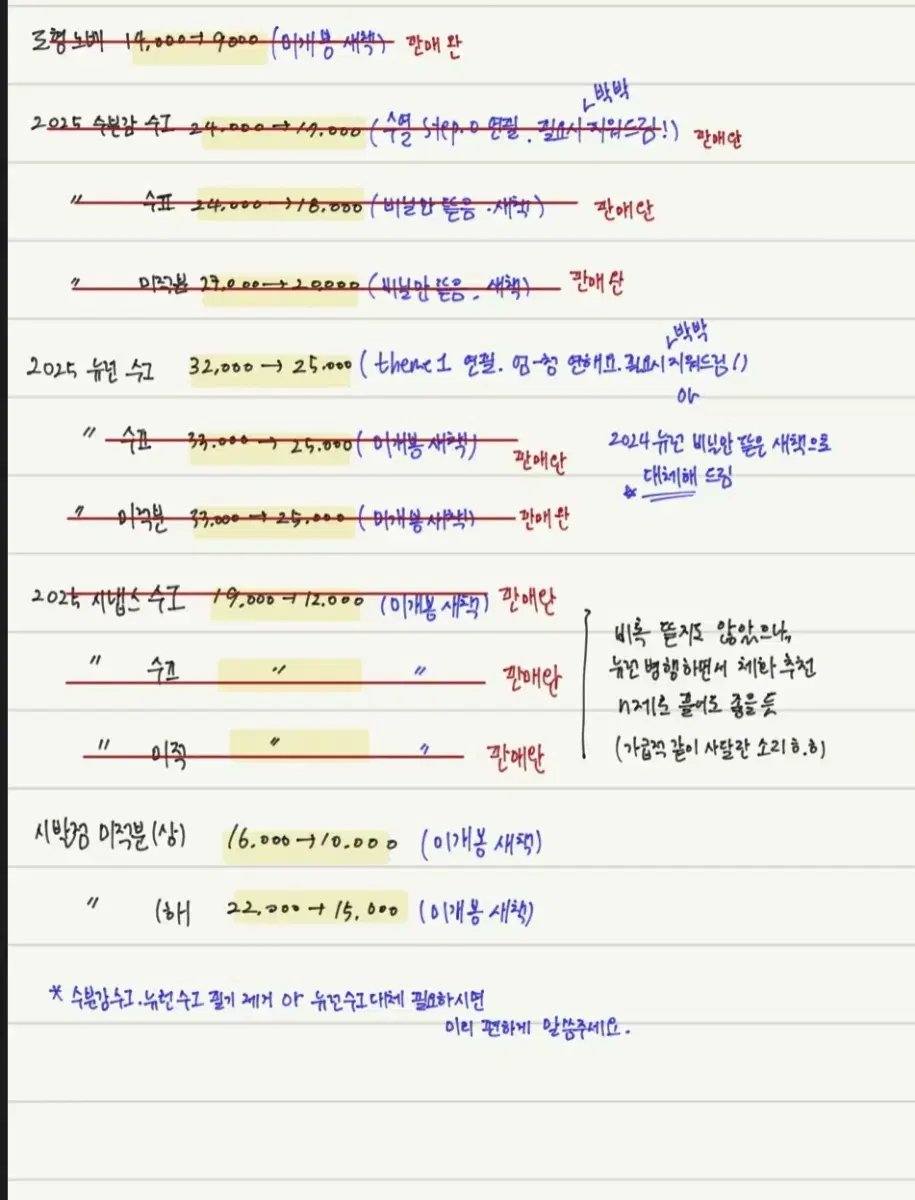 도형노베 14,000→9000 (미개봉 새책) 판매완
박박
2025 수분감 수1 24.000→17.000 (수열 step.0 연필. 필요시 지워드림!) 판매완
〃 수2 24.000→18.000 (비닐만 뜯음. 새책) 판매완
〃 미적분 27.000→20.000 (비닐만 뜯음. 새책) 판매완
박박
2025 뉴런 수1 32,000→25.000 (theme 1 연필. 엄-청 연해요. 필요시 지워드림!)
or
〃 수2 33.000→25.000 (미개봉 새책) 판매완
2024 뉴런 비닐만 뜯은 새책으로
* 대체해 드림
〃 미적분 33.000→25.000 (미개봉 새책) 판매완
2025 시냅스 수1 19,000→12.000 (미개봉 새책) 판매완
〃 수2 〃 〃 판매완
〃 미적 〃 〃 판매완
비록 뜯지도 않았으나,
뉴런 병행하면서 체화 추천
n제로 풀어도 좋을듯
(가급적 같이 사달란 소리 ㅎ.ㅎ)
시발점 미적분(상) 16.000→10.000 (미개봉 새책)
〃 (하) 22,000→15,000 (미개봉 새책)
* 수분감수1.뉴런수1 필기 제거 or 뉴런수1대체 필요하시면
미리 편하게 말씀주세요.